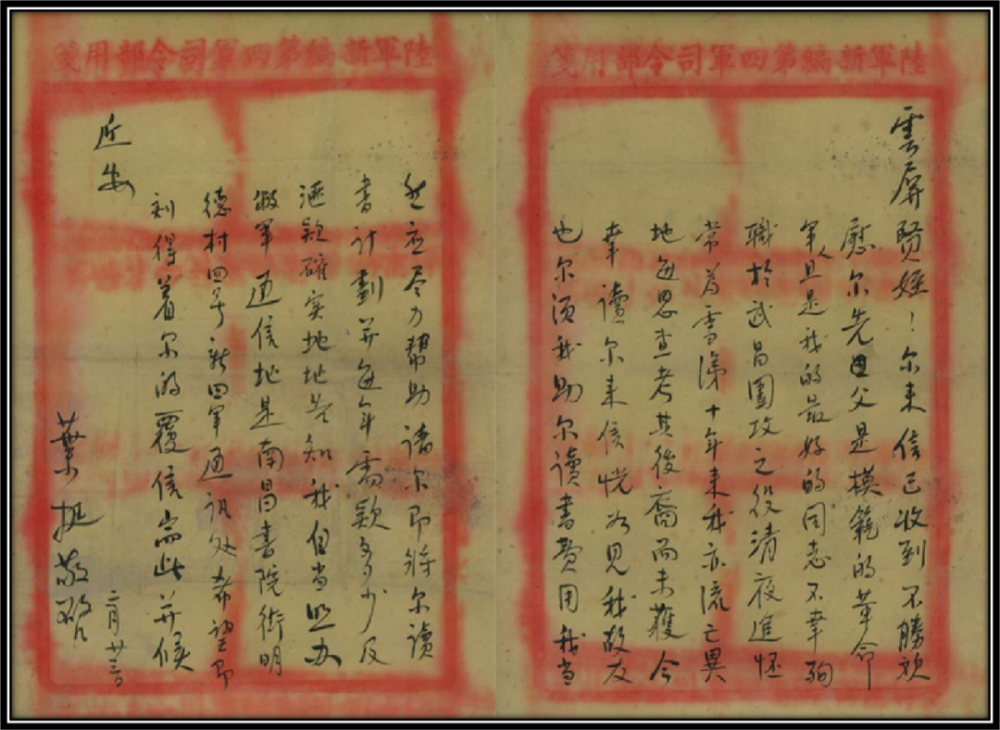 陸軍新編第四軍司令部用箋
雲屏賢姪！尔来信已收到不勝欣
慰尔先父是模範的革命
軍人且是我的最好的同志不幸殉
職於武昌圍攻之役清夜追怀
常為雪涕十年来我亦流亡異
地每思查考其後裔而未獲今
幸讀尔来信恍如見我故友
也尔须我助尔讀書費用我当
陸軍新編第四軍司令部用箋
然应尽力幫助請尔即将尔讀
書計劃并每年需款多少及
滙款確实地址告知我自当照办
敝軍通信地是南昌書院街明
德村四号新四軍通訊处希望即
刻得着尔的覆信耑此并候
近安
葉挺敬啟
二月廿三日